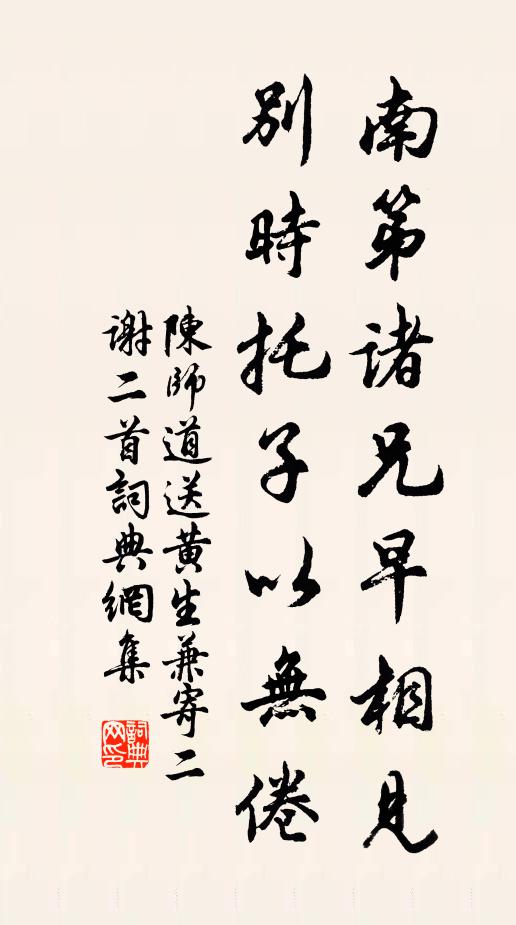 南第諸兄早相見
別時托子以無倦
陳師道送黃生兼寄二
謝二首詞典網集
詞典網印